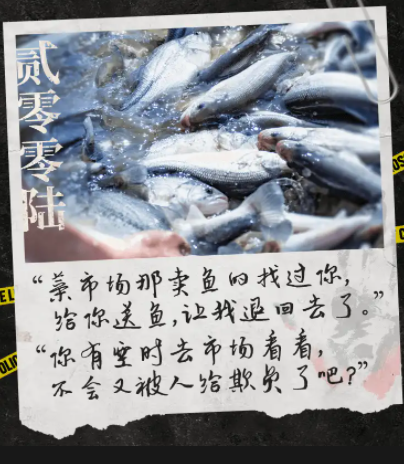 贰零零陆
“菜市场那卖鱼的找过你，
给你送鱼，让我退回去了。”
“你有空时去市场看看，
不会又被人给欺负了吧？”